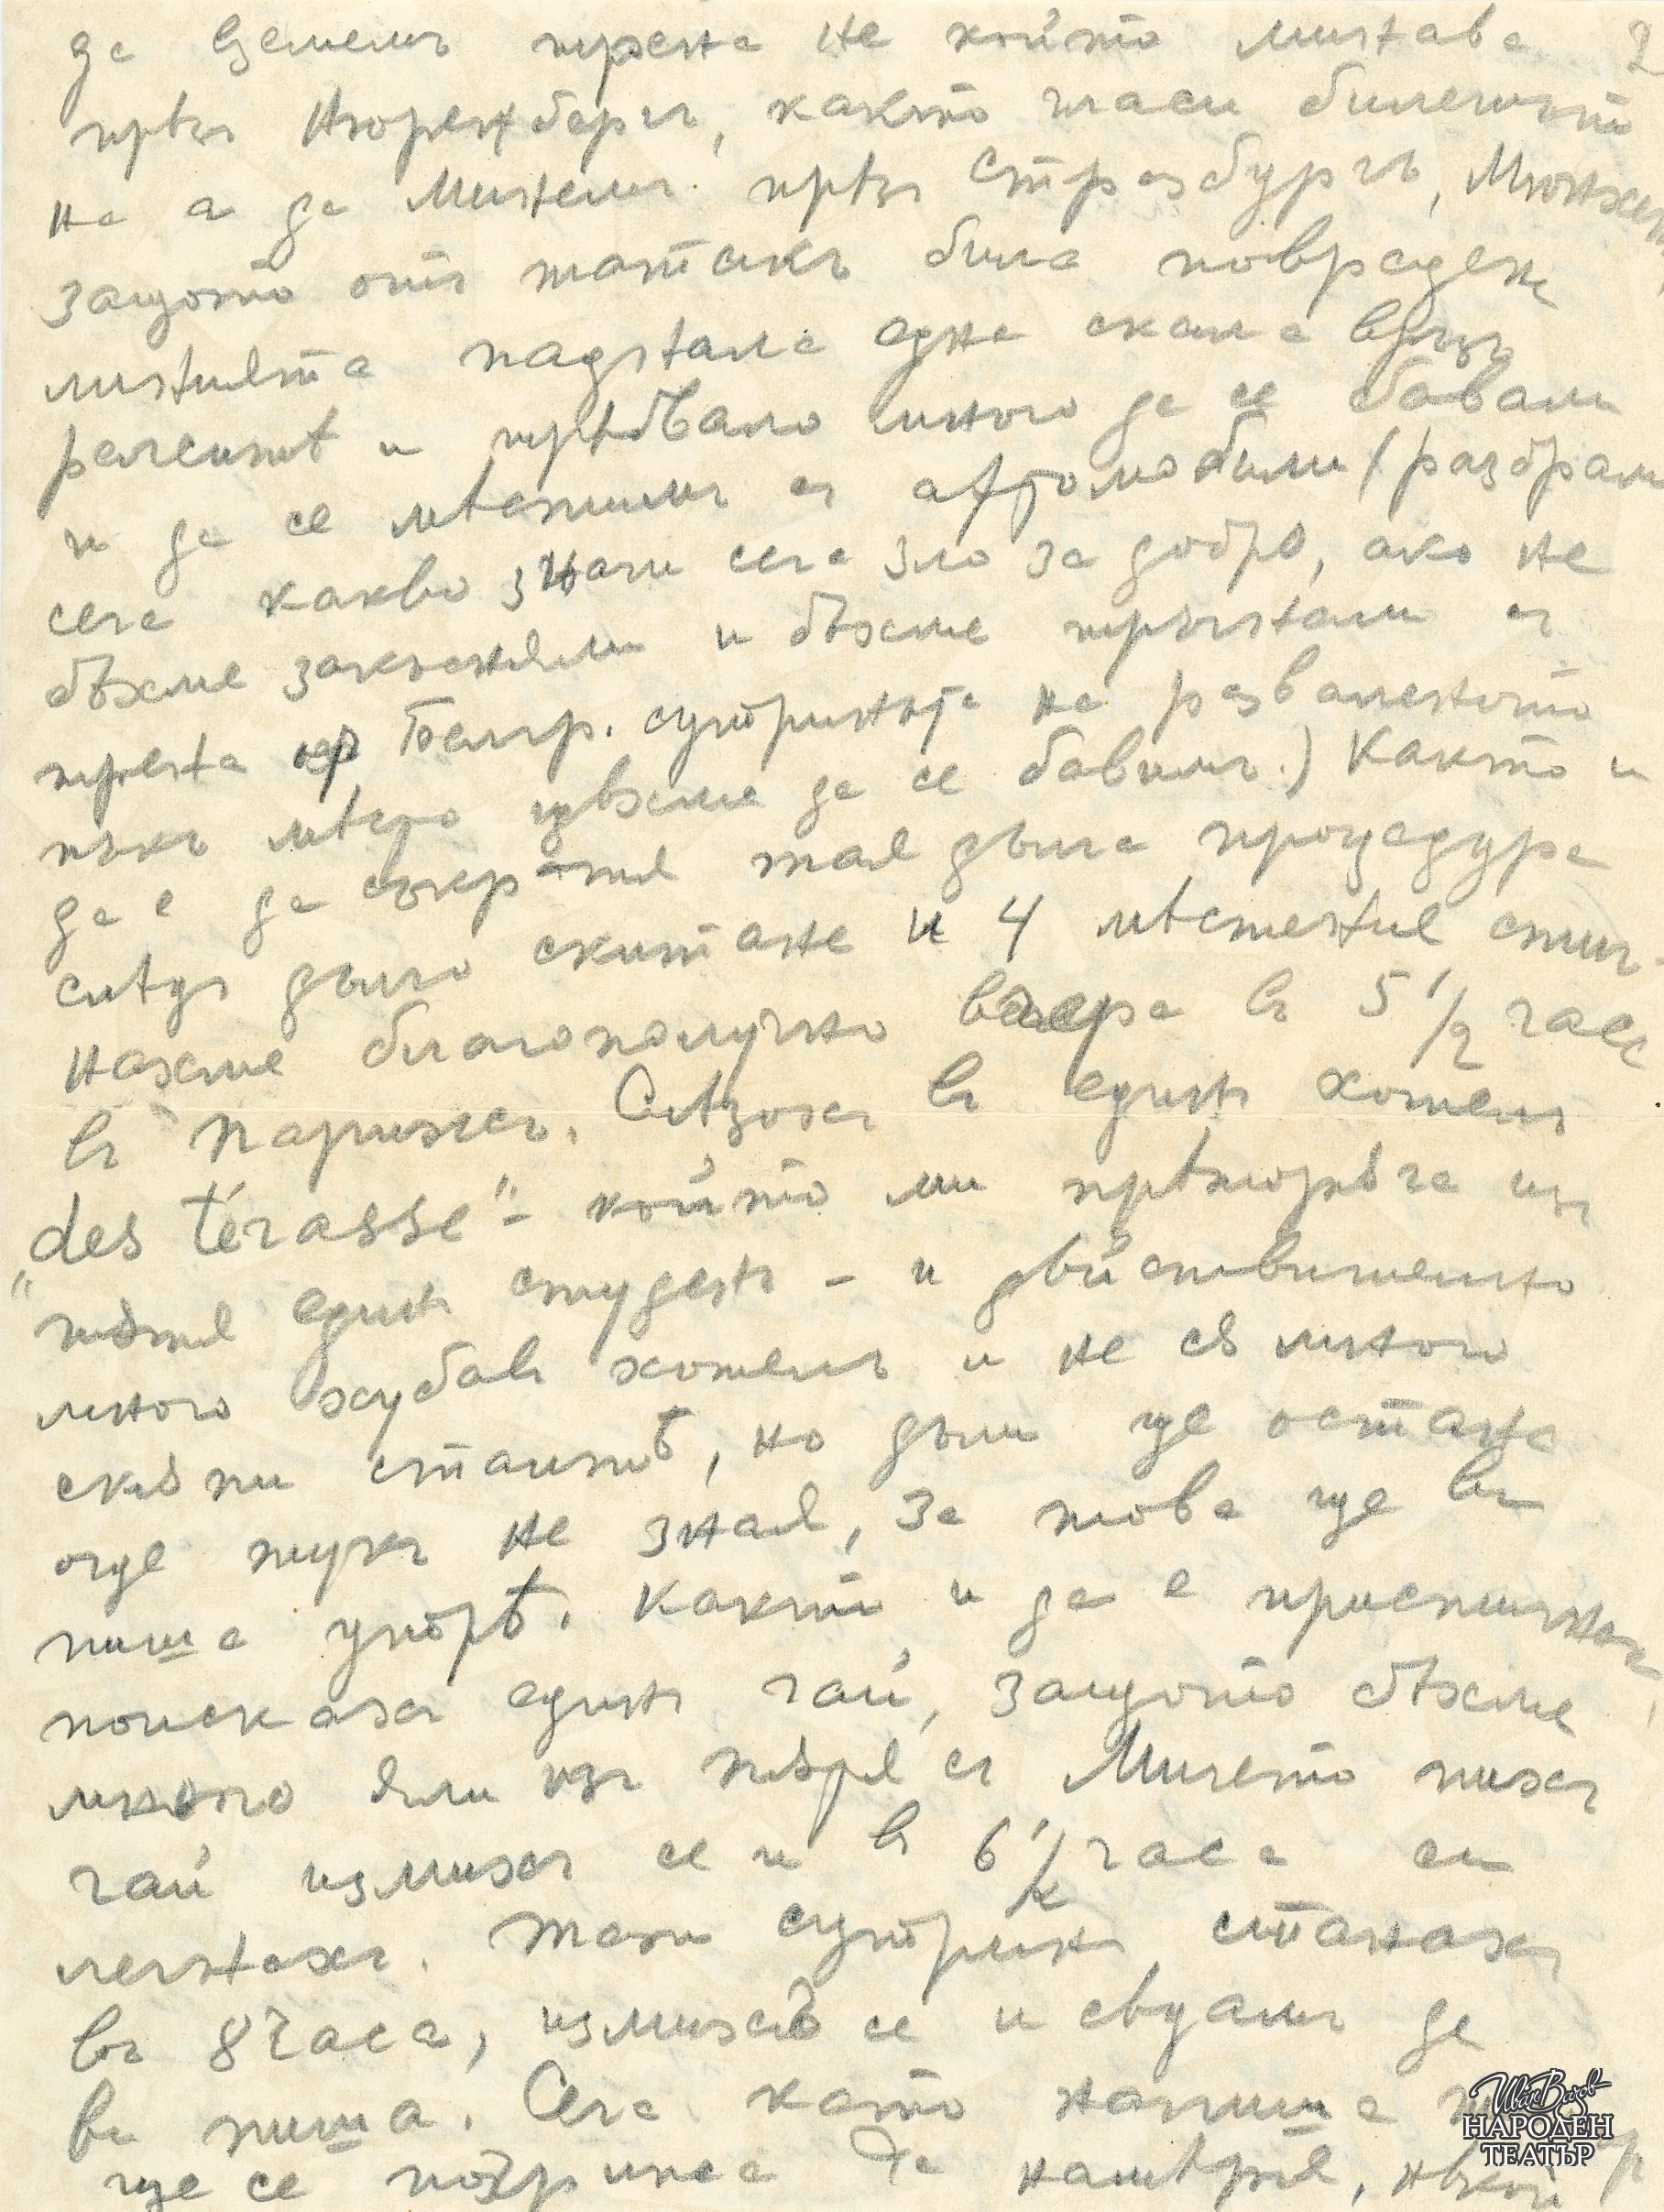 да вземемъ трена не който минава 2
прѣзъ Нюренбергъ, както гласи билетътъ
не а да минемъ прѣзъ Страсбургъ, Мюнхенъ,
защото отъ татъкъ била повредена
линията паднала една скала върху
релситѣ и трѣбвало много да се бавимъ
и да се мѣстимъ съ автомобили (разбрали
сега какво значи сега зло за добро, ако не
бѣхме закъснѣли и бѣхме тръгнали съ
трена отъ Белгр. сутриньта на разваленото
пъкъ мѣсто щѣхме да се бавимъ.) Както и
да е да съкратя тая дълга процедура
слѣдъ дълго скитане и 4 мѣстения стиг-
нахме благополучно вчера въ 5 1/2 часа
въ Парижъ. Слѣзохъ въ единъ хотелъ
„des térasse" - който ми прѣпоръча изъ
пътя единъ студентъ - и дѣйствително
много хубавъ хотелъ и не сѫ много
скѫпи стаитѣ, но дали ще остана
още тукъ не зная, за това ще ви
пиша утрѣ. Както и да е пристигнахъ,
поискахъ единъ чай, защото бѣхме
много яли изъ пѫтя съ Мичето пихъ
чай измихъ се и въ 6 1/2 часа си
легнахъ. Тази сутринь станахъ
въ 8 часа, измихъ се и сѣдамъ да
ви пиша. Сега като напиша
ще се потрудя да намѣря, нѣкой
Иван Вазов
НАРОДЕН
ТЕАТЪР